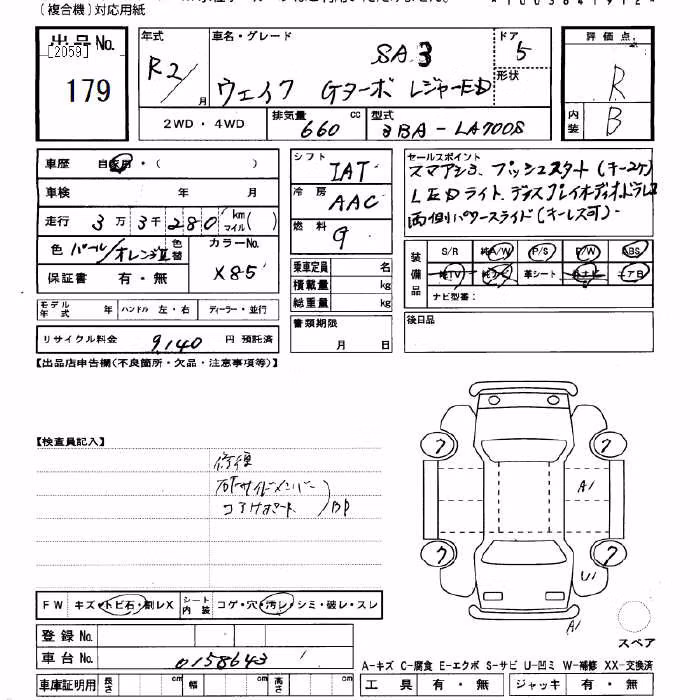 (複合機)対応用紙
出品No.
[2059]
179
年式
R2/
月
車名・グレード
SA3
ウェイク Gターボ レジャーED
ドア
5
形状
評価点
R
内装
B
2WD・4WD
排気量
660
cc
型式
3BA-LA700S
車歴 自家用・( )
車検 年 月
走行 3万3千280 km マイル( )
色 パール/オレンジⅡ
色替
カラーNo.
X85
保証書 有・無
モデル年式 年
ハンドル 左・右
ディーラー・並行
リサイクル料金 9,140 円 預託済
シフト
IAT
冷房
AAC
燃料
g
乗車定員 名
積載量 kg
総重量 kg
書類期限
月 日
セールスポイント
スマアシ3、プッシュスタート(キー2ケ)
LEDライト、ディスプレイオーディオ、ドラレコ
両側パワースライド(キーレス可)
装備品
S/R 純A/W P/S P/W ABS
純TV 革シート エアB
ナビ型番:
後日品
【出品店申告欄(不良箇所・欠品・注意事項等)】
【検査員記入】
修復
コアサポート
BP
7 7
A1
7 7
U1
A1
スペア
FW キズ・トビ石・刷レX
シート内装 コゲ・穴・汚レ・シミ・破レ・スレ
登録No.
車台No. 0158643
車庫証明用 長さ cm 幅 cm 高さ cm
A-キズ C-腐食 E-エクボ S-サビ U-凹ミ W-補修 XX-交換済
工具 有・無 ジャッキ 有・無